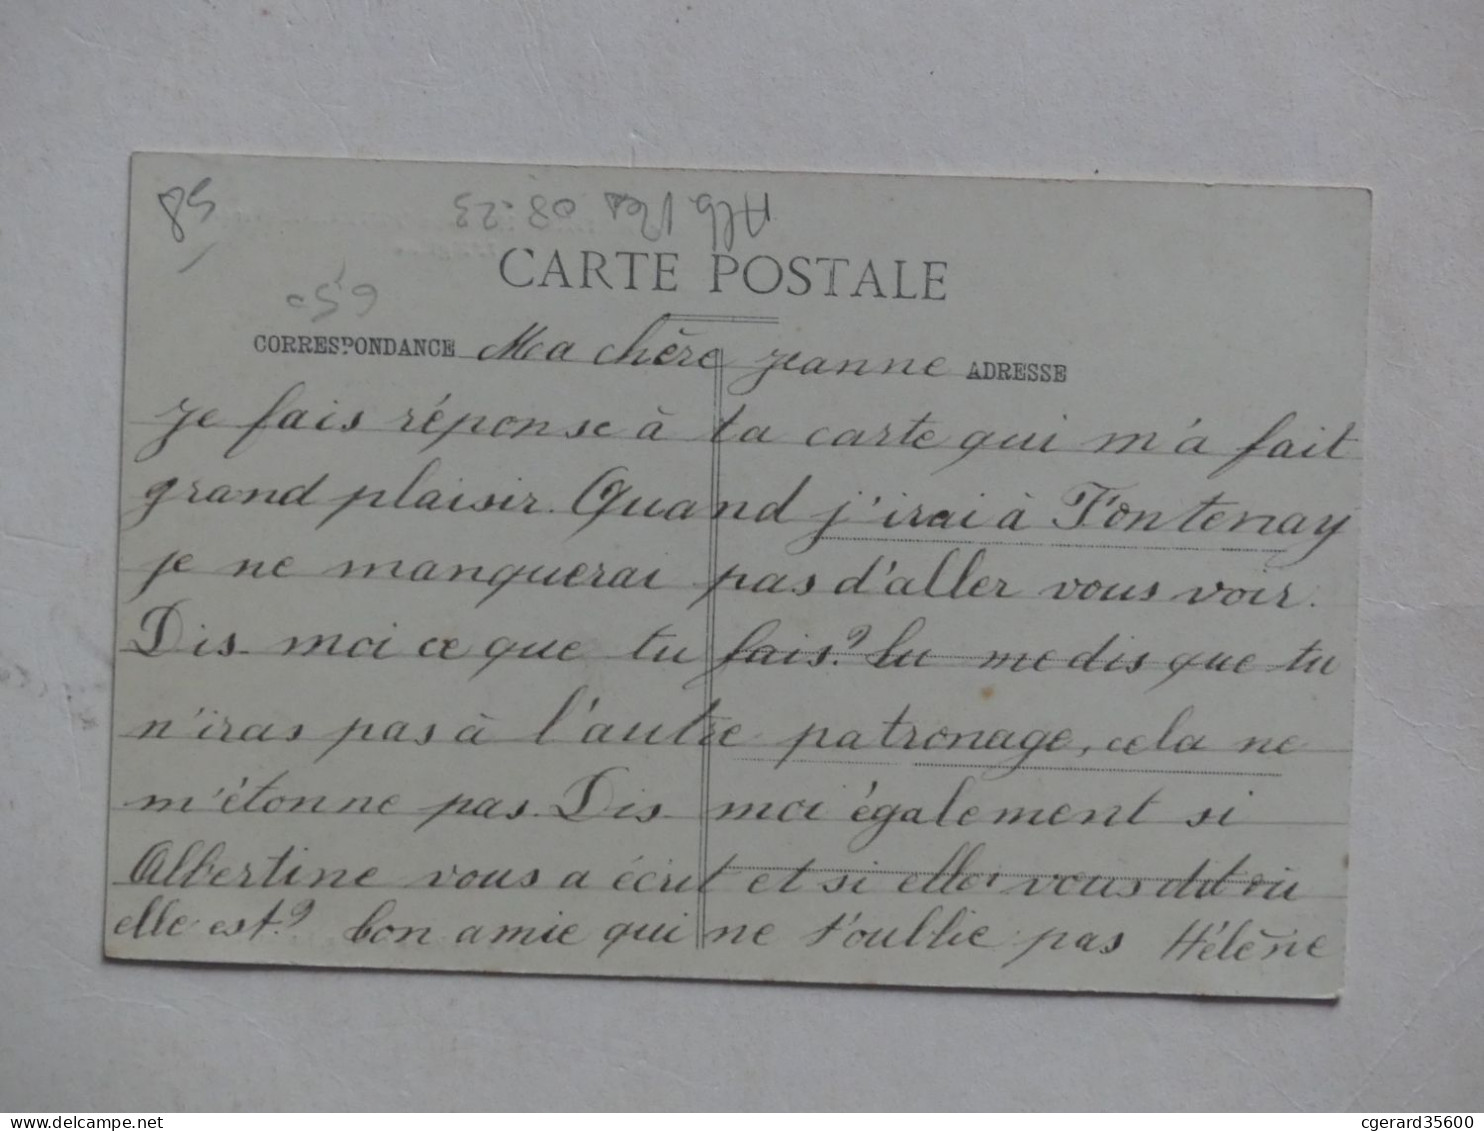 85
08-23
CARTE POSTALE
6,50
CORRESPONDANCE Ma chère Jeanne ADRESSE
Je fais réponse à ta carte qui m'a fait
grand plaisir. Quand j'irai à Fontenay
je ne manquerai pas d'aller vous voir.
Dis-moi ce que tu fais? Tu me dis que tu
n'iras pas à l'autre patronage, cela ne
m'étonne pas. Dis-moi également si
Albertine vous a écrit et si elle vous dit où
elle est? bon amie qui ne t'oublie pas Hélène
cgerard35600